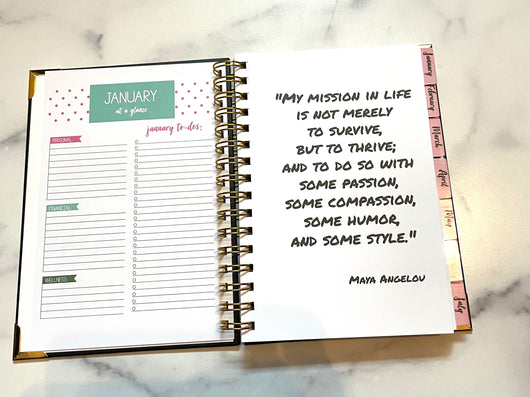 JANUARY
at a glance
january to-dos:
PERSONAL
FINANCIAL
WELLNESS
"MY MISSION IN LIFE
IS NOT MERELY
TO SURVIVE,
BUT TO THRIVE;
AND TO DO SO WITH
SOME PASSION,
SOME COMPASSION,
SOME HUMOR,
AND SOME STYLE."
MAYA ANGELOU
January
February
March
April
May
July